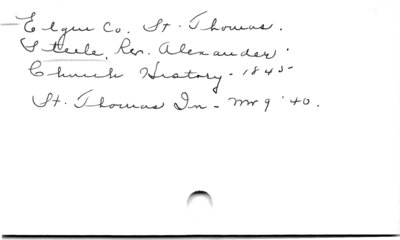 Elgin Co. St. Thomas.
Steele, Rev. Alexander.
Church History - 1845-
St. Thomas In - Mr 9 '40.